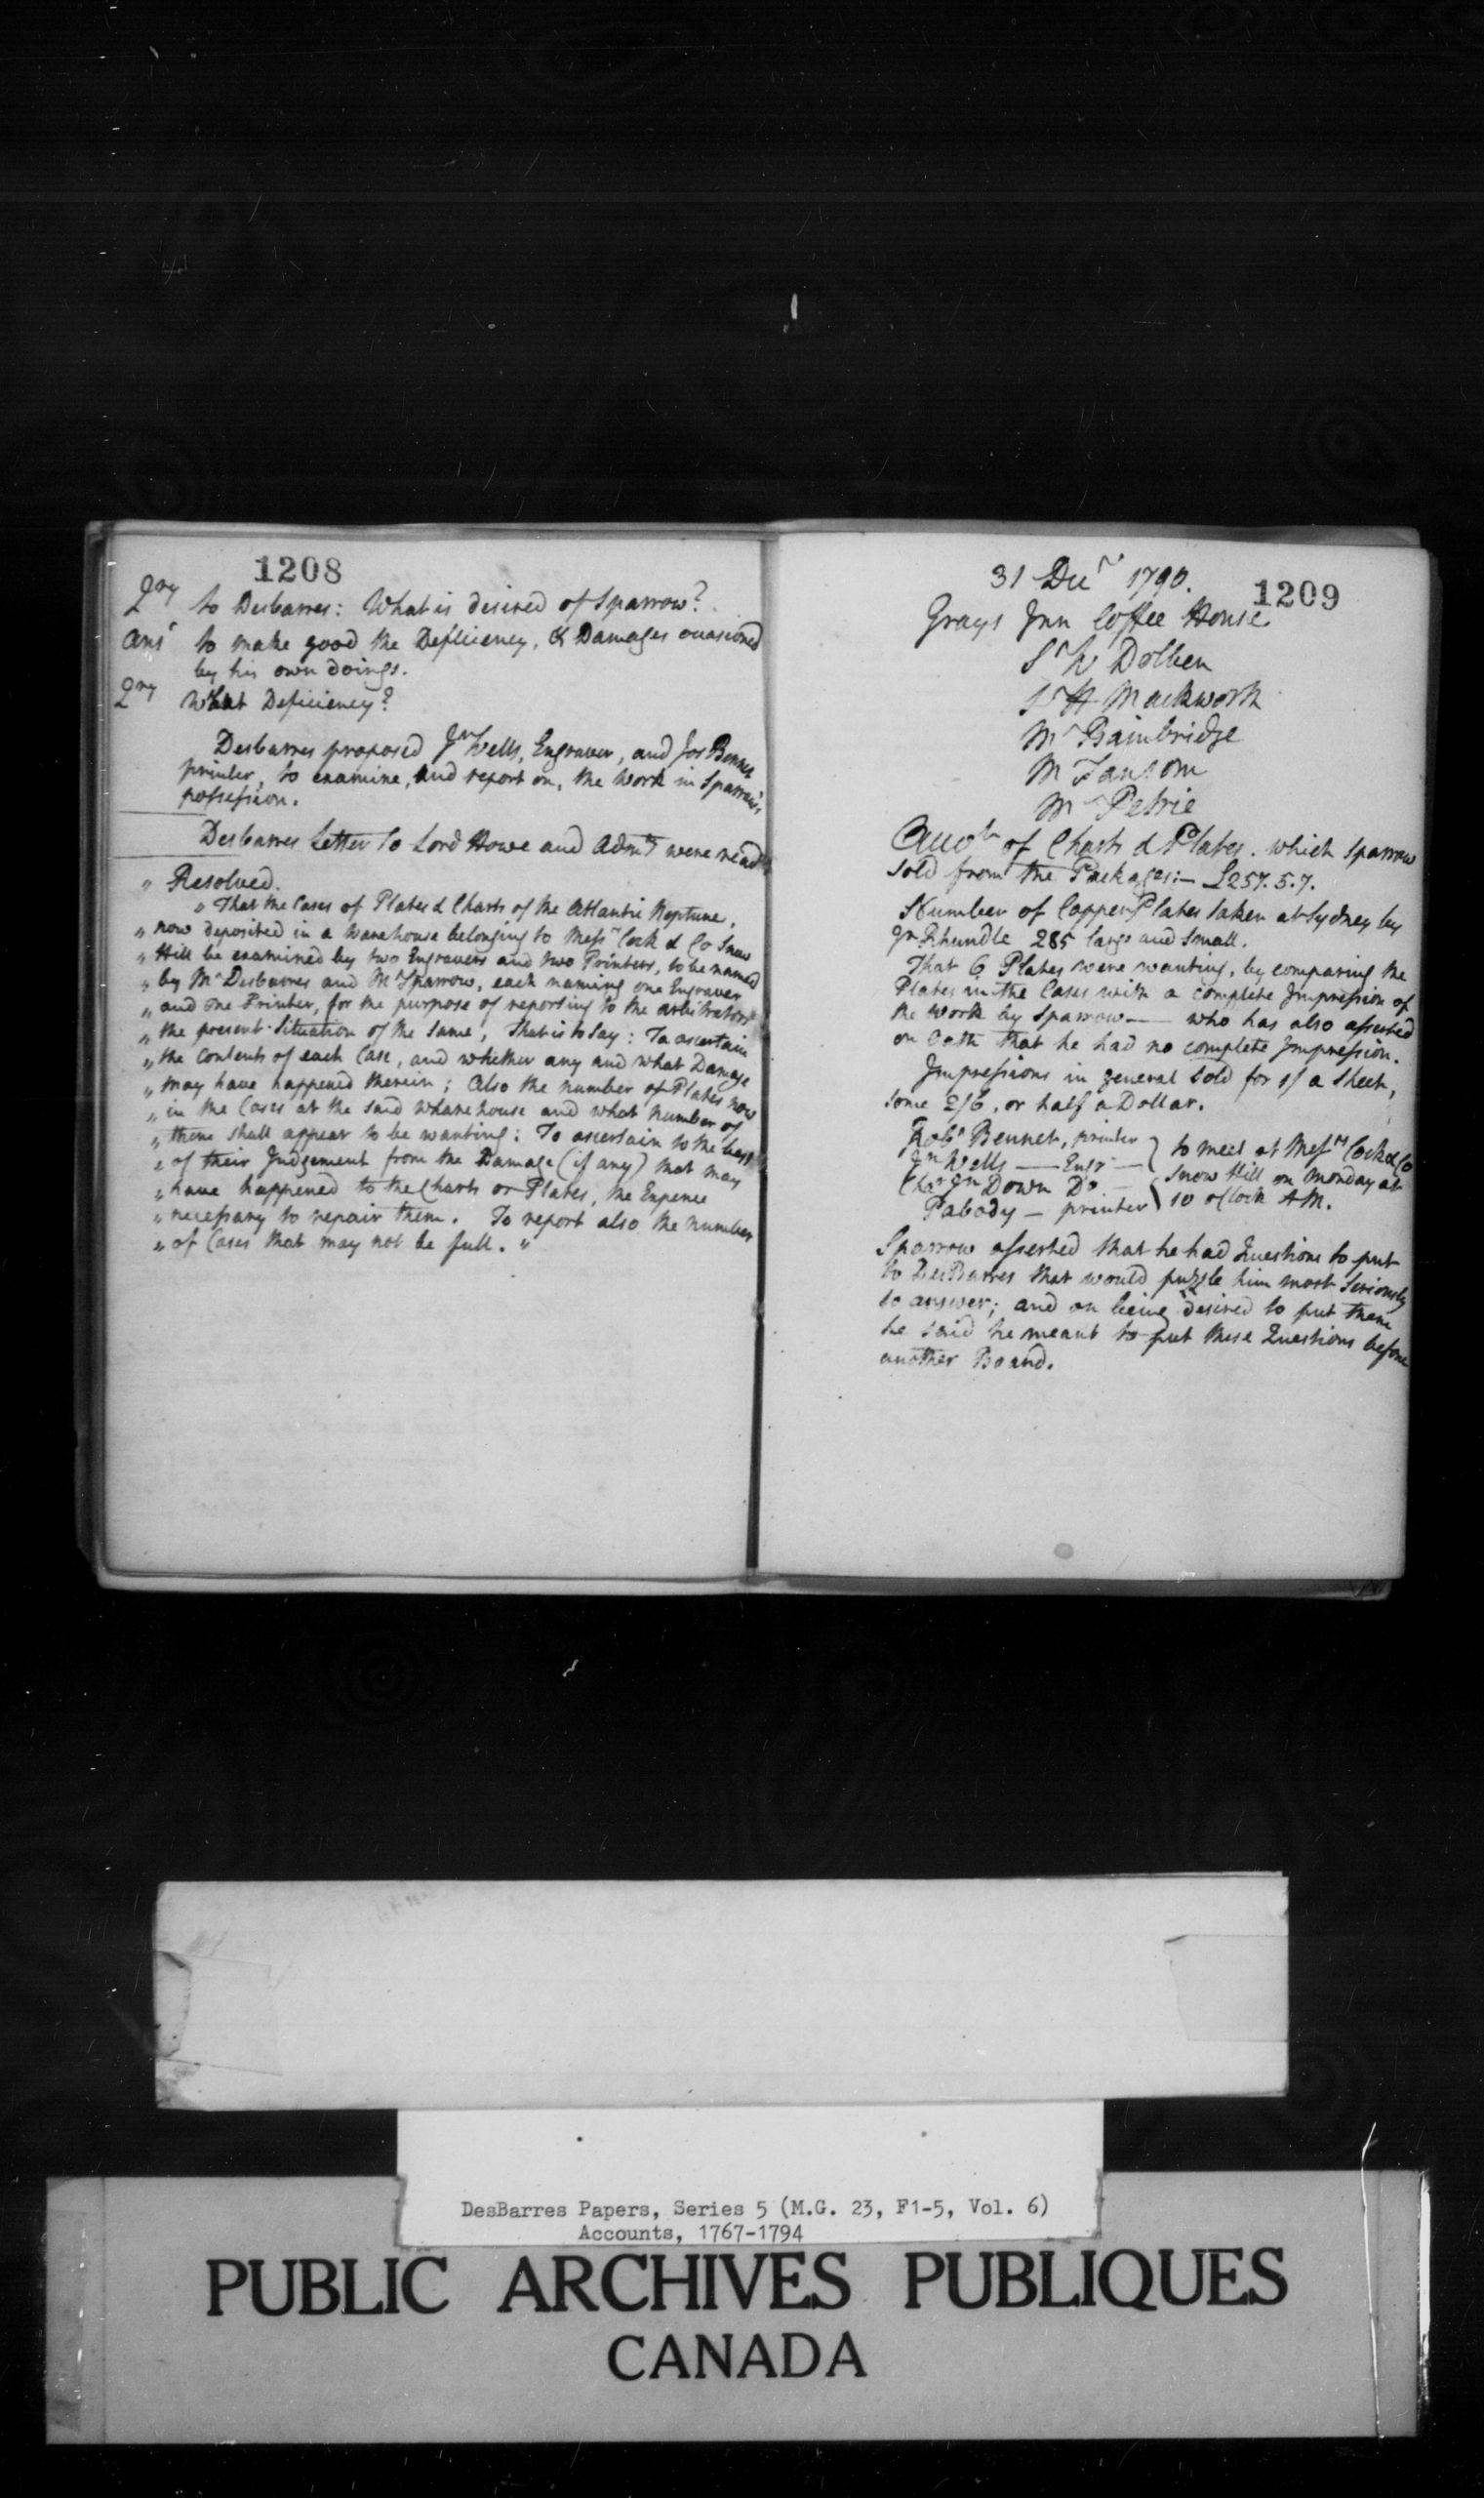 1208
Qry to Desbarres: What is desired of Sparrow?
Ansr to make good the Deficiency, & Damages occasioned
by his own doings.
Qry What Deficiency?
Desbarres proposed Jn Wells, Engraver, and Jos Bennet
printer, to examine, and report on, the work in Sparrow's
possession.
Desbarres Letter to Lord Howe and Admty were read
" Resolved.
" That the Cases of Plates & Charts of the Atlantic Neptune,
" now deposited in a Warehouse belonging to Messrs Cock & Co Snow
" Hill be examined by two Engravers and two Printers, to be named
" by Mr Desbarres and Mr Sparrow, each naming one Engraver
" and one Printer, for the purpose of reporting to the arbitrators
" the present Situation of the same, That is to say: To ascertain
" the Contents of each Case, and whether any and what Damage
" may have happened therein; Also the number of Plates now
" in the Cases at the said wharehouse and what number of
" them shall appear to be wanting: To ascertain to the best
" of their Judgement from the Damage (if any) that may
" have happened to the Charts or Plates, the Expence
" necessary to repair them. To report also the number
" of Cases that may not be full. "
31 Decr 1790.
1209
Grays Inn Coffee House
Sr W Dolben
Sr H Mackworth
Mr Bainbridge
Mr Fansom
Mr Petrie
of Charts & Plates. which Sparrow
sold from the Packages:— £257.5.7.
Number of Copper Plates taken at Sydney by
Jn Rhundle 285 large and small.
That 6 Plates were wanting, by comparing the
Plates in the Cases with a complete Impression of
the Work by Sparrow — who has also asserted
on Oath that he had no complete Impression.
Impressions in general sold for 1/ a Sheet,
some 2/6, or half a Dollar.
Robt Bennet, printer } to meet at Messrs Cock & Co
Jn Wells — Engr — Snow Hill on Monday at
Chas Jn Down Do — 10 oClock AM.
Pabody — printer
Sparrow asserted that he had Questions to put
to DesBarres that would puzzle him most Seriously
to answer; and on being desired to put them
he said he meant to put these Questions before
another Board.
DesBarres Papers, Series 5 (M.G. 23, F1-5, Vol. 6)
Accounts, 1767-1794
PUBLIC ARCHIVES PUBLIQUES
CANADA